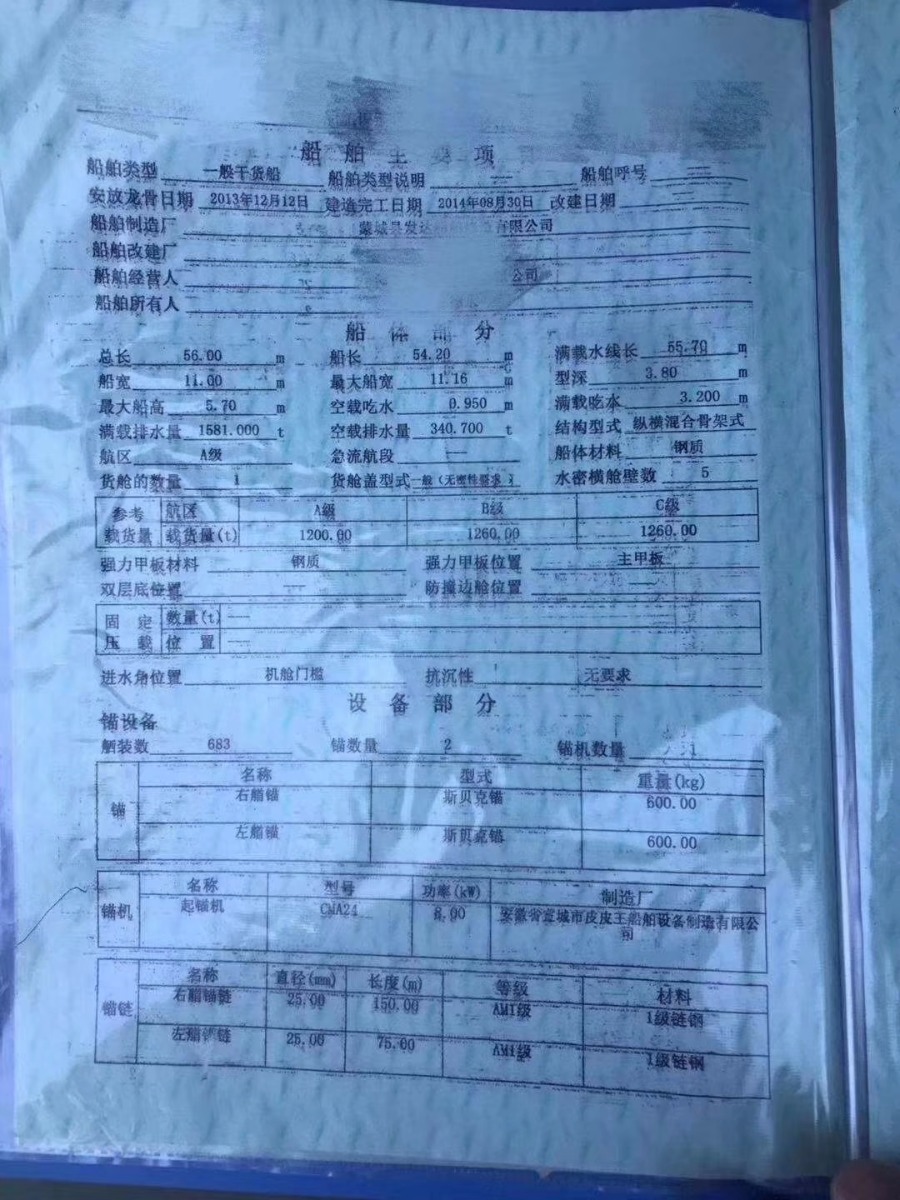 船舶主要项
船舶类型 一般干货船 船舶类型说明 — 船舶呼号 —
安放龙骨日期 2013年12月12日 建造完工日期 2014年08月30日 改建日期
船舶制造厂 蒙城县发达 有限公司
船舶改建厂
船舶经营人 公司
船舶所有人
船体部分
总长 56.00 m 船长 54.20 m 满载水线长 55.70 m
船宽 11.00 m 最大船宽 11.16 m 型深 3.80 m
最大船高 5.70 m 空载吃水 0.950 m 满载吃水 3.200 m
满载排水量 1581.000 t 空载排水量 340.700 t 结构型式 纵横混合骨架式
航区 A级 急流航段 — 船体材料 钢质
货舱的数量 1 货舱盖型式 一般(无密性要求) 水密横舱壁数 5
参考 航区 A级 B级 C级
载货量 载货量(t) 1200.00 1260.00 1260.00
强力甲板材料 钢质 强力甲板位置 主甲板
双层底位置 — 防撞边舱位置 —
固定 数量(t) —
压载 位置 —
进水角位置 机舱门槛 抗沉性 无要求
设备部分
锚设备
舾装数 683 锚数量 2 锚机数量 1
名称 型式 重量(kg)
锚 右艏锚 斯贝克锚 600.00
左艏锚 斯贝克锚 600.00
名称 型号 功率(kW) 制造厂
锚机 起锚机 CMA24 .00 安徽省宣城市皮皮王船舶设备制造有限公
司
名称 直径(mm) 长度(m) 等级 材料
锚链 右艏锚链 25.00 150.00 AM1级 1级链钢
左艏锚链 25.00 75.00 AM1级 1级链钢